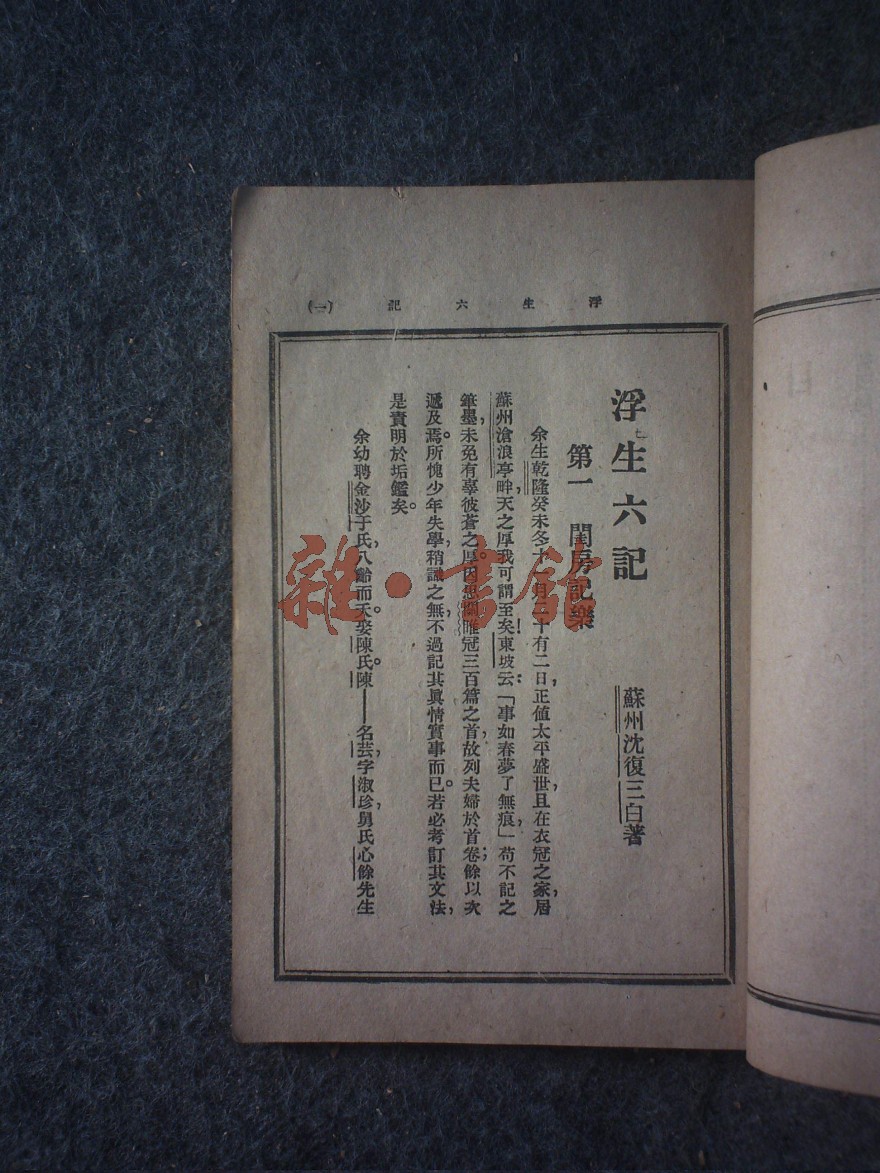 浮生六記 (一)
浮生六記
蘇州沈復三白著
第一 閨房記樂
余生乾隆癸未冬十一月二十有二日,正値太平盛世,且在衣冠之家,居
蘇州滄浪亭畔,天之厚我可謂至矣!東坡云:「事如春夢了無痕」,苟不記之
筆墨,未免有辜彼蒼之厚。因思關雎冠三百篇之首,故列夫婦於首卷;餘以次
遞及焉。所愧少年失學,稍識之無,不過記其眞情實事而已。若必考訂其文法,
是責明於垢鑑矣。
余幼聘金沙于氏,八齡而夭。娶陳氏。陳——名芸,字淑珍,舅氏心餘先生
雜·書館